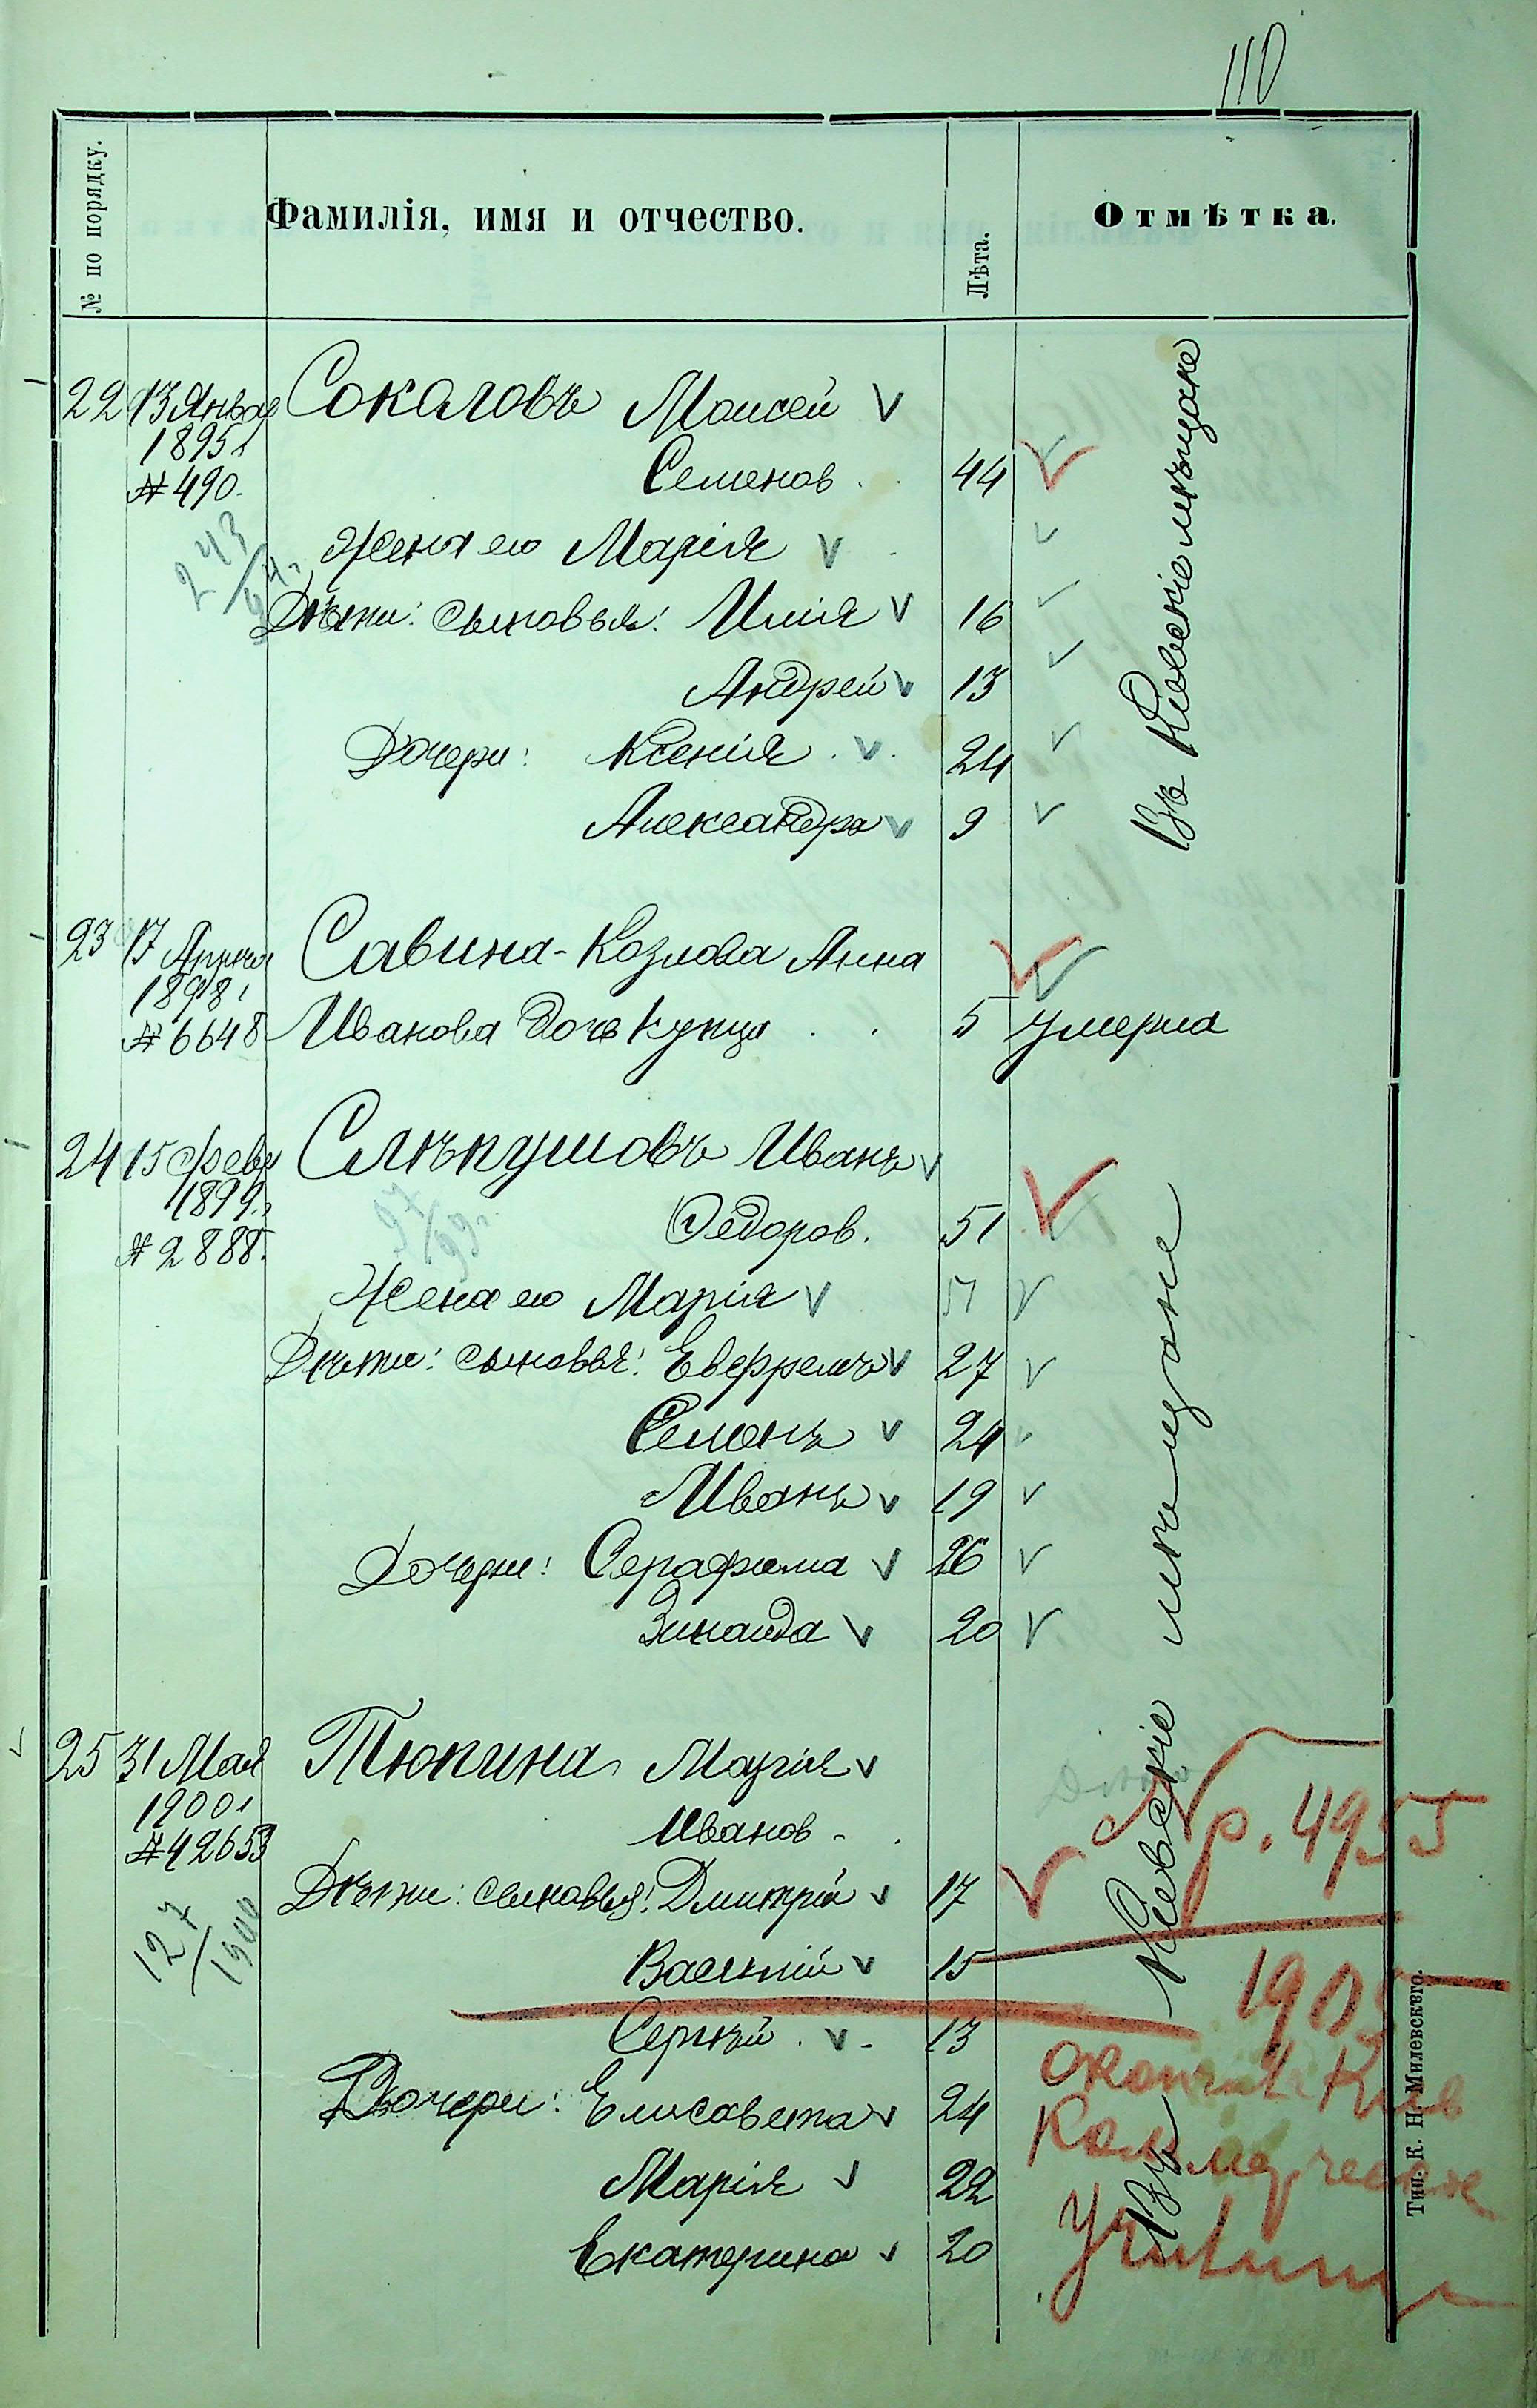 110
№ по порядку.
Фамилія, имя и отчество.
Лѣта.
Отмѣтка.
22 13 Январ Соколовъ Моисей
1895 г.
Семенов. 44
№ 490.
243/94 г.
Жена его Марія
Дѣти: сыновья: Илія 16
Андрей 13
Дочери: Ксенія 24
Александра 9
Въ Кіевскіе мѣщане
23 17 Апрѣля Савина-Козлова Анна
1898 г.
№ 6648 Иванова дочь купца 5 умерла
24 15 Февр Слѣпушовъ Иванъ
1899 г.
Федоров. 51
№ 2888.
97/99 г.
Жена его Марія 51
Дѣти: сыновья: Евфремъ 27
Семенъ 24
Иванъ 19
Дочери: Серафима 26
Зинаида 20
25 31 Мая Тюпина Марія
1900 г.
Иванов.
№ 42653
127/1900
Дѣти: сыновья: Дмитрій 17
Василій 15
Сергѣй 13
Дочери: Елисавета 24
Марія 22
Екатерина 20
Въ Кіевскіе мѣщане
р. 4955
1905
Коммерческое
Тип. К. Н. Милевскаго.